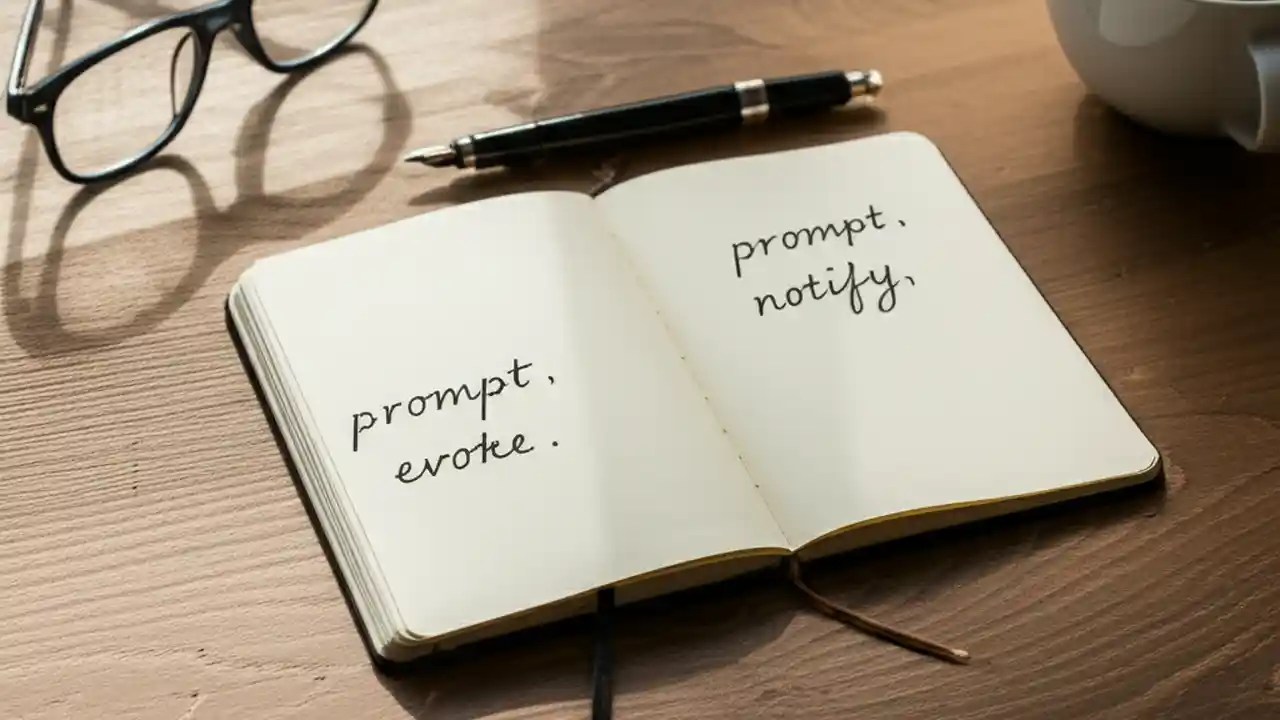 prompt,
evoke.
prompt.
notify,